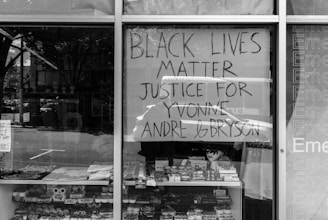 BLACK LIVES
MATTER
JUSTICE FOR
YVONNE
ANDRE & BRYSON
Eme